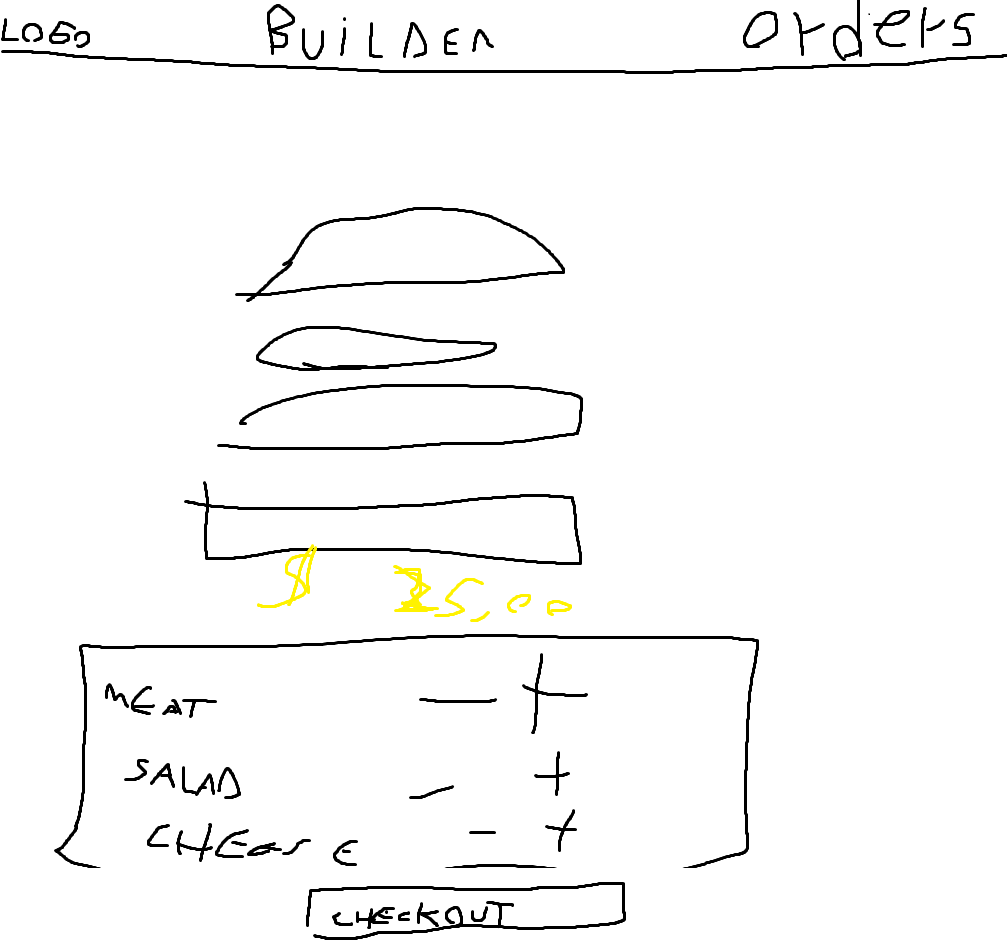 LOGO BUILDER orders
$ 25,00
MEAT - +
SALAD - +
CHEESE - +
CHECKOUT